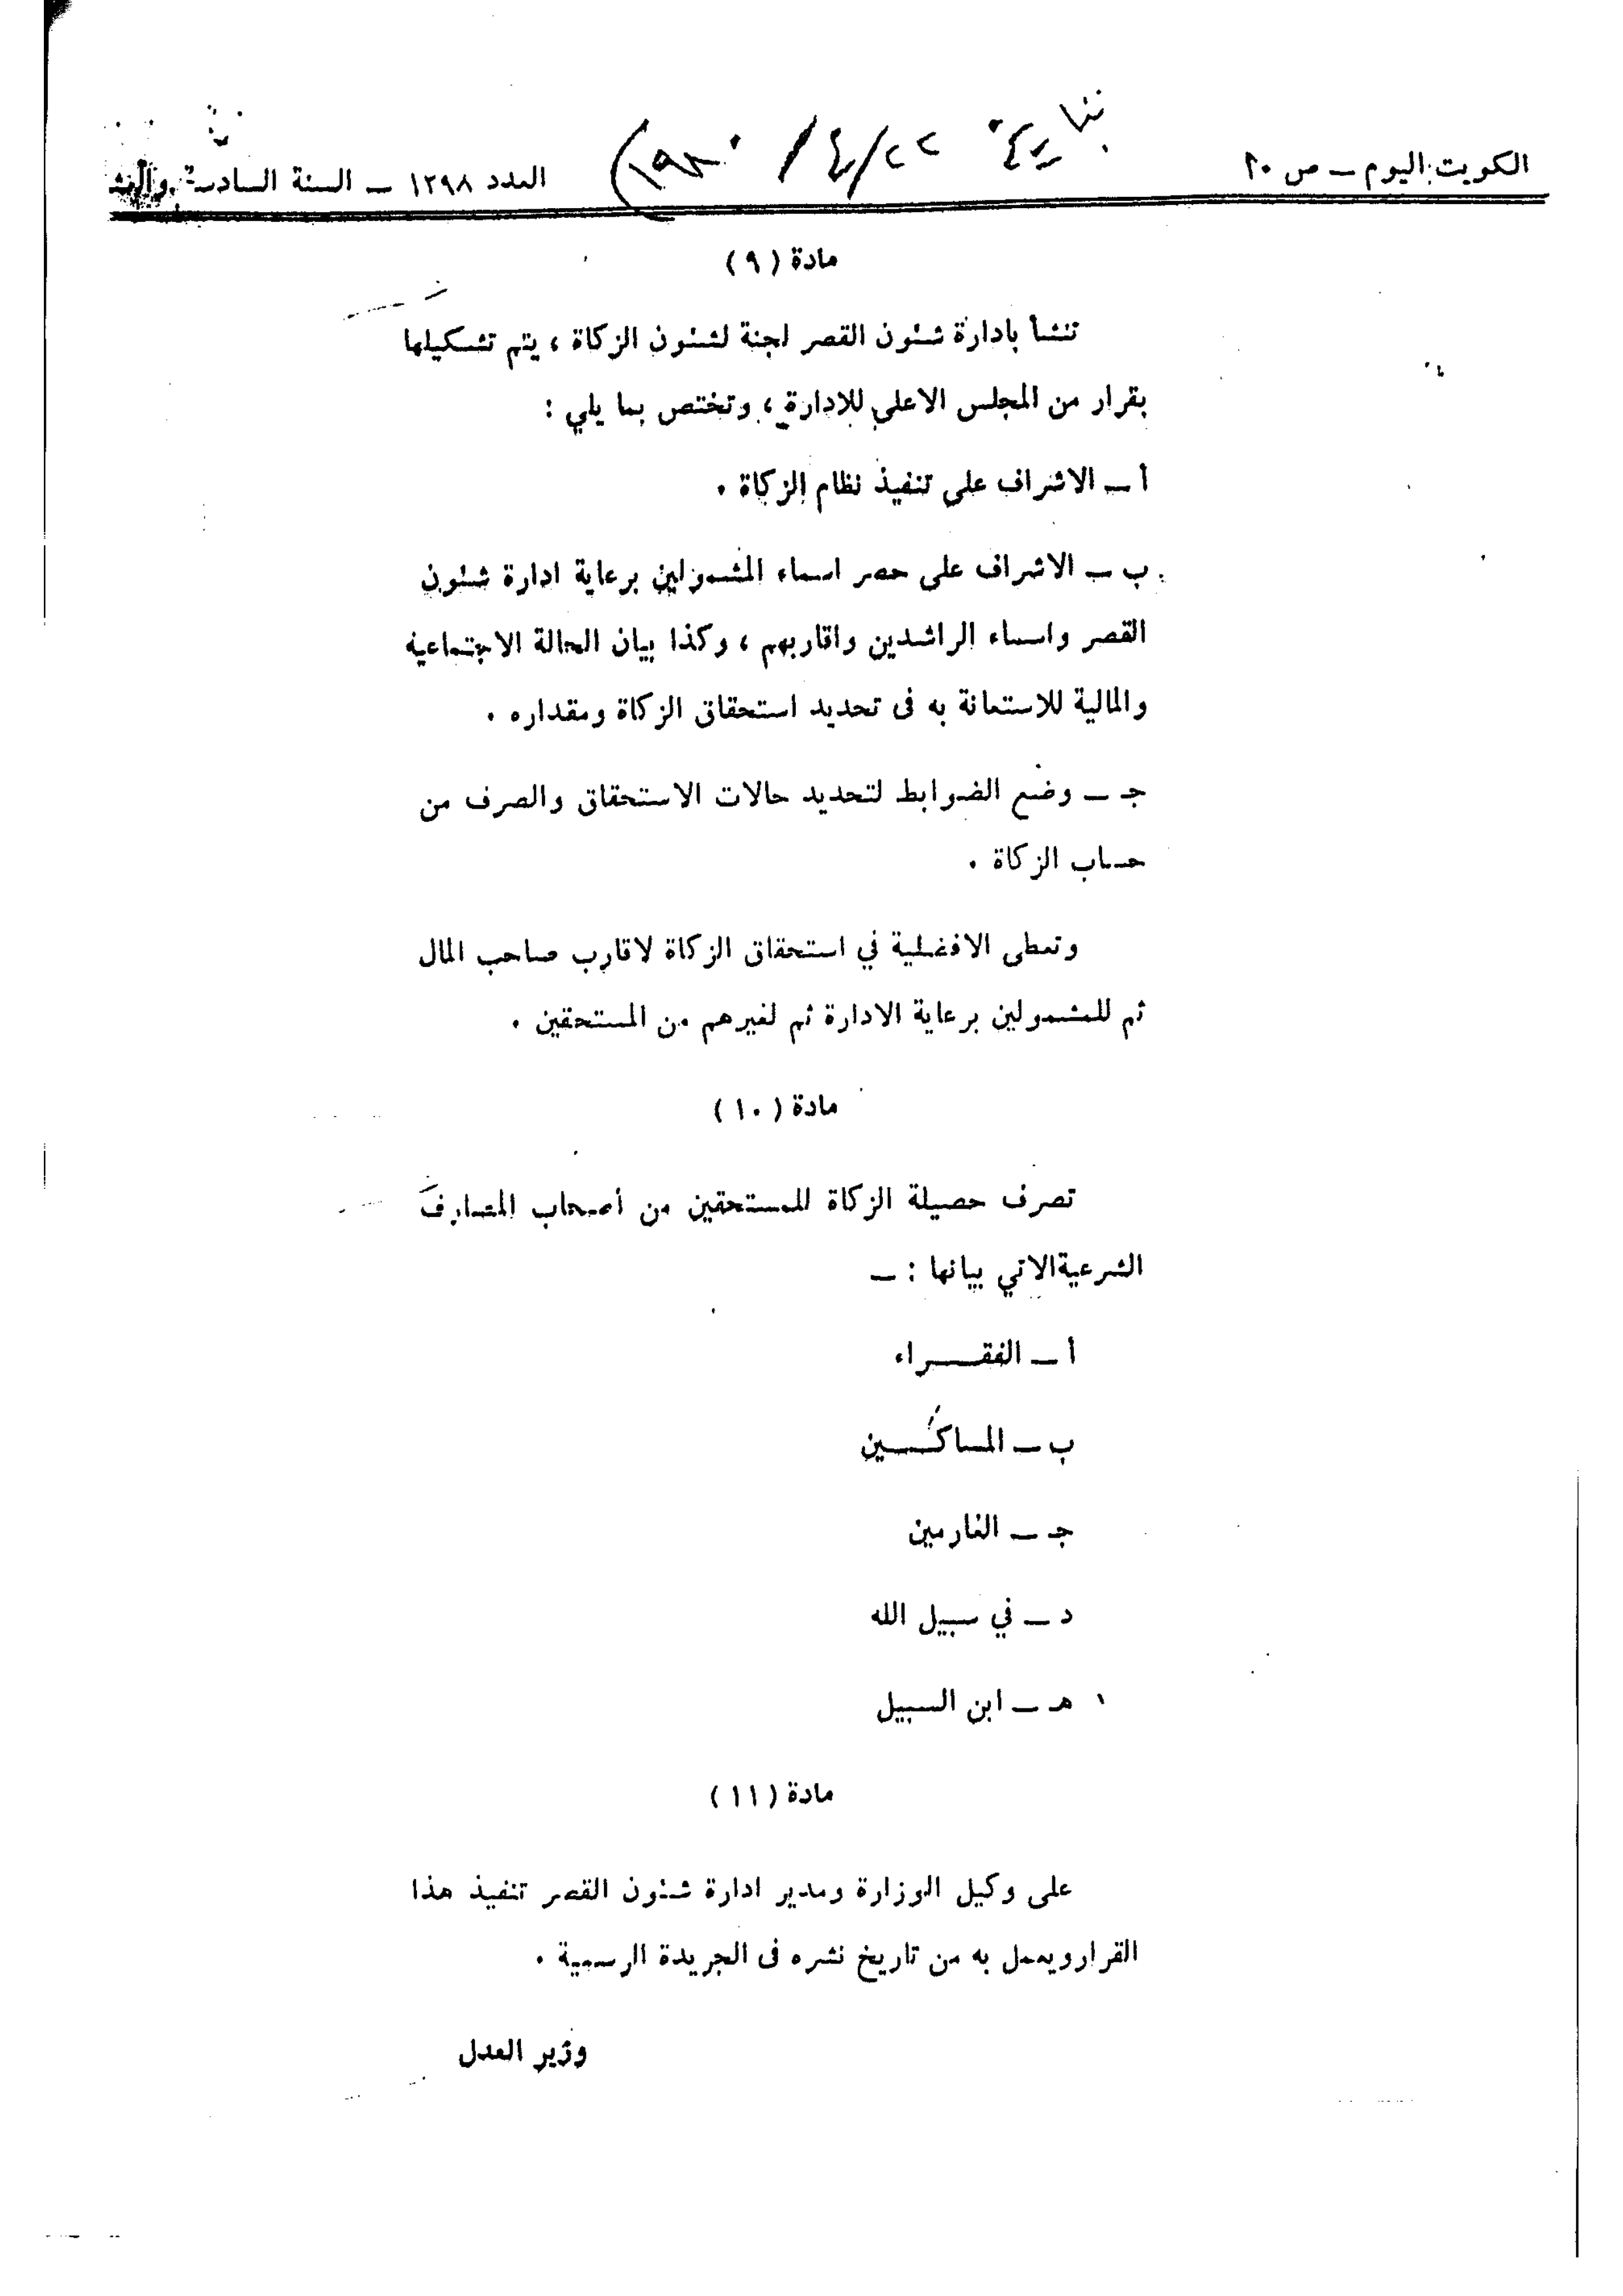 الكويت اليوم ــ ص ٢٠
بتاريخ ٢٢/٤/١٩٨٠
العدد ١٢٩٨ ــ السنة السادسة
مادة ( ٩ )
تنشأ بادارة شئون القصر لجنة لشئون الزكاة ، يتم تشكيلها
بقرار من المجلس الاعلى للادارة ، وتختص بما يلي :
أ ــ الاشراف على تنفيذ نظام الزكاة .
ب ــ الاشراف على حصر اسماء المشمولين برعاية ادارة شئون
القصر واسماء الراشدين واقاربهم ، وكذا بيان الحالة الاجتماعية
والمالية للاستعانة به فى تحديد استحقاق الزكاة ومقداره .
جـ ــ وضع الضوابط لتحديد حالات الاستحقاق والصرف من
حساب الزكاة .
وتعطى الافضلية في استحقاق الزكاة لاقارب صاحب المال
ثم للمشمولين برعاية الادارة ثم لغيرهم من المستحقين .
مادة ( ١٠ )
تصرف حصيلة الزكاة للمستحقين من أصحاب المصارف
الشرعية الاتي بيانها : ــ
أ ــ الفقـــراء
ب ــ المساكـــين
جـ ــ الغارمين
د ــ في سبيل الله
هـ ــ ابن السبيل
مادة ( ١١ )
على وكيل الوزارة ومدير ادارة شئون القصر تنفيذ هذا
القرار ويعمل به من تاريخ نشره فى الجريدة الرسمية .
وزير العدل